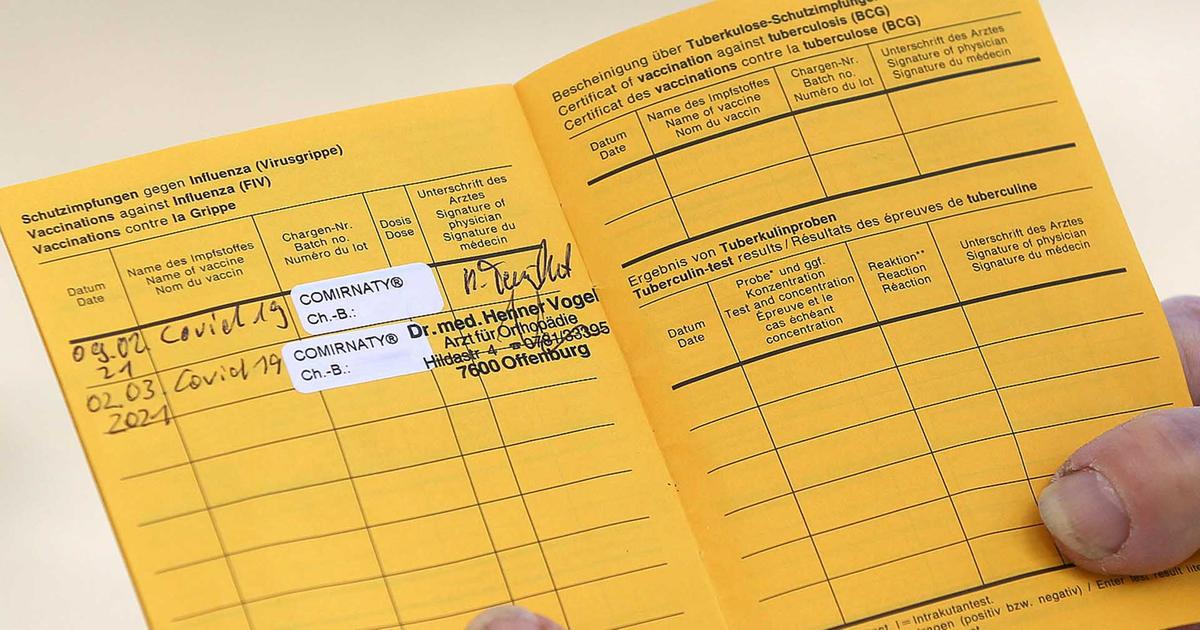 Schutzimpfungen gegen Influenza (Virusgrippe)
Vaccinations against Influenza (FIV)
Vaccinations contre la Grippe
Datum
Date
Name des Impfstoffes
Name of vaccine
Nom du vaccin
Chargen-Nr.
Batch no.
Numéro du lot
Dosis
Dose
Unterschrift des
Arztes
Signature of
physician
Signature du
médecin
09.02.
21
Covid 19
COMIRNATY®
Ch.-B.:
02.03.
2021
Covid 19
COMIRNATY®
Ch.-B.:
Dr. med. Henner Vogel
Arzt für Orthopädie
Hildastr 4 0781/33395
7600 Offenburg
Bescheinigung über Tuberkulose-Schutzimpfungen
Certificate of vaccination against tuberculosis (BCG)
Certificat des vaccinations contre la tuberculose (BCG)
Datum
Date
Name des Impfstoffes
Name of vaccine
Nom du vaccin
Chargen-Nr.
Batch no.
Numéro du lot
Unterschrift des Arztes
Signature of physician
Signature du médecin
Ergebnis von Tuberkulinproben
Tuberculin-test results / Résultats des épreuves de tuberculine
Datum
Date
Probe* und ggf.
Konzentration
Test and concentration
Épreuve et le
cas échéant
concentration
Reaktion**
Reaction
Réaction
Unterschrift des Arztes
Signature of physician
Signature du médecin
I = Intrakutantest.
(positiv bzw. negativ) / Enter test result